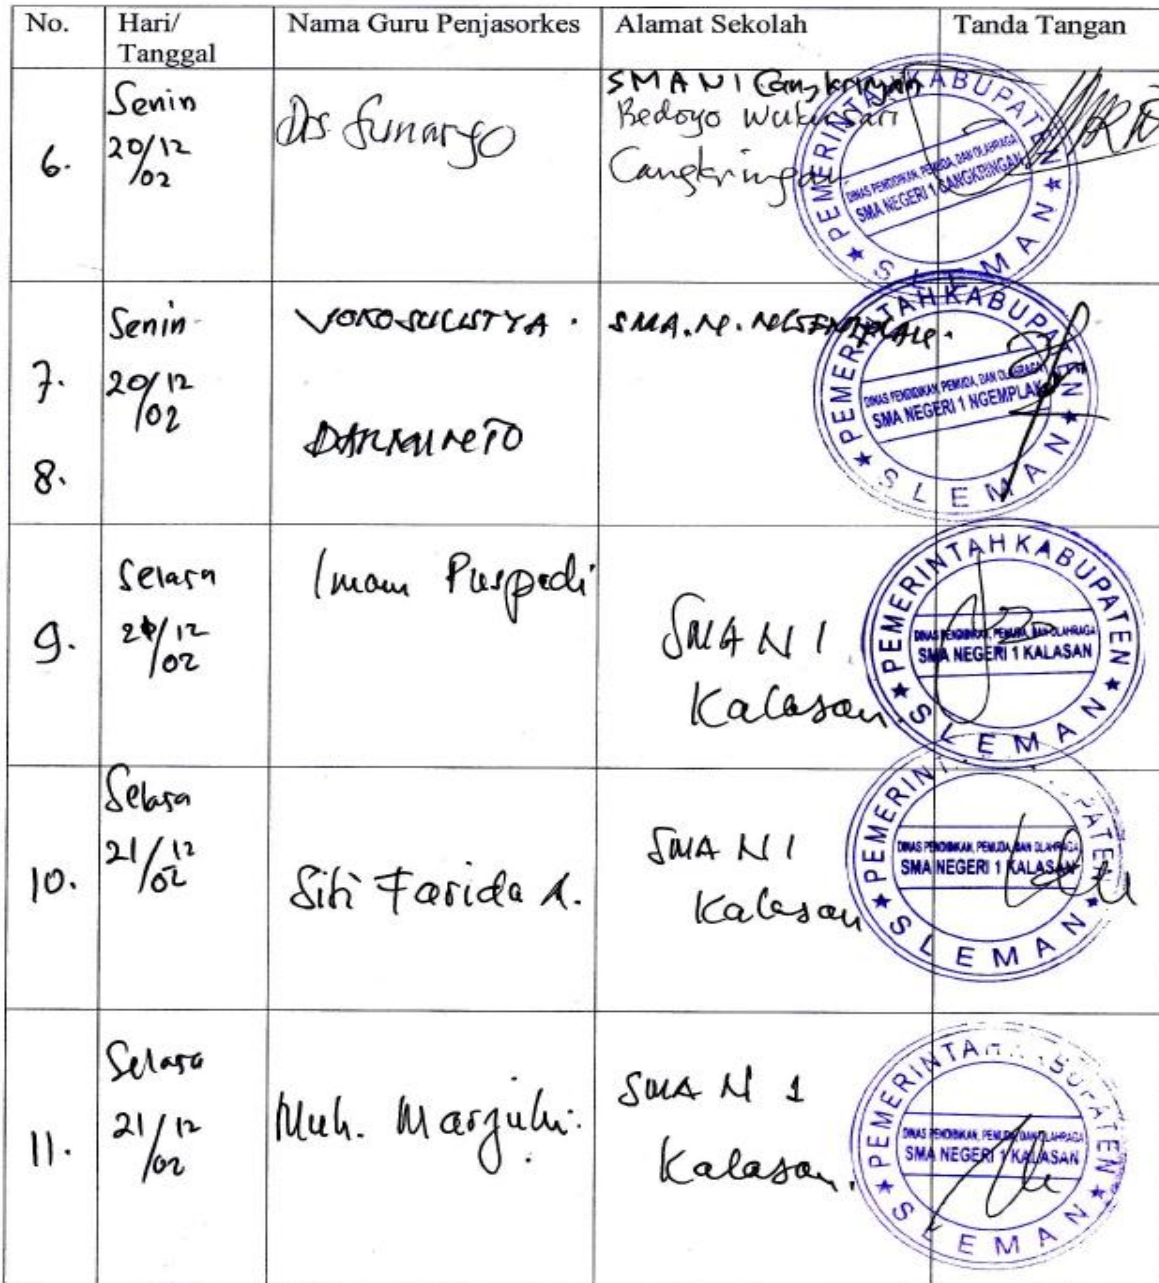 No.
Hari/
Tanggal
Nama Guru Penjasorkes
Alamat Sekolah
Tanda Tangan
6.
Senin
20/12
/02
Drs Sunaryo
SMA N 1 Cangkringan
Bedoyo Wukirsari
Cangkringan
PEMERINTAH KABUPATEN
DINAS PENDIDIKAN, PEMUDA, DAN OLAHRAGA
SMA NEGERI 1 CANGKRINGAN
★ SLEMAN ★
7.
8.
Senin
20/12
/02
YOKO SULISTYA.
SMA.N.
PEMERINTAH KABUPATEN
DINAS PENDIDIKAN, PEMUDA, DAN OLAHRAGA
SMA NEGERI 1 NGEMPLAK
★ SLEMAN ★
9.
Selasa
21/12
/02
Imam Puspadi
SMA N 1
Kalasan.
PEMERINTAH KABUPATEN
DINAS PENDIDIKAN, PEMUDA, DAN OLAHRAGA
SMA NEGERI 1 KALASAN
★ SLEMAN ★
10.
Selasa
21/12
/02
Siti Farida A.
SMA N 1
Kalasan
PEMERINTAH KABUPATEN
DINAS PENDIDIKAN, PEMUDA, DAN OLAHRAGA
SMA NEGERI 1 KALASAN
★ SLEMAN ★
11.
Selasa
21/12
/02
Muh. Marzuki.
SMA N 1
Kalasan.
PEMERINTAH KABUPATEN
DINAS PENDIDIKAN, PEMUDA, DAN OLAHRAGA
SMA NEGERI 1 KALASAN
★ SLEMAN ★